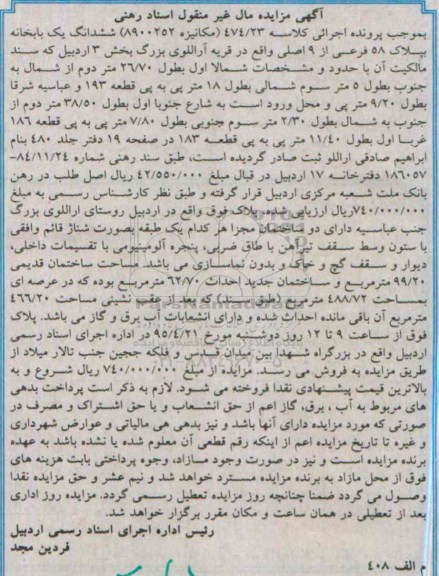 آگهی مزایده مال غیر منقول اسناد رهنی
بموجب پرونده اجرائی کلاسه ۴۷۴/۲۳ (مکانیزه ۸۹۰۰۲۵۲) ششدانگ یک بابخانه
بپلاک ۵۸ فرعی از ۹ اصلی واقع در قریه آراللوی بزرگ بخش ۳ اردبیل که سند
مالکیت آن با حدود و مشخصات شمالا اول بطول ۲۶/۷۰ متر دوم از شمال به
جنوب بطول ۵ متر سوم شمالی بطول ۱۸ متر پی به پی قطعه ۱۹۳ و عباسیه شرقا
بطول ۹/۲۰ متر پی و محل ورود است به شارع جنوبا اول بطول ۳۸/۵۰ متر دوم از
جنوب به شمال بطول ۲/۳۰ متر سوم جنوبی بطول ۷/۸۰ متر پی به پی قطعه ۱۸۶
غربا اول بطول ۱۱/۴۰ متر پی به پی قطعه ۱۸۳ در صفحه ۱۹ دفتر جلد ۴۸۰ بنام
ابراهیم صادقی اراللو ثبت صادر گردیده است، طبق سند رهنی شماره ۸۴/۱۱/۲۴-
۱۸۶۰۵۷ دفترخانه ۱۷ اردبیل در قبال مبلغ ۴۲/۵۵۰/۰۰۰ ریال اصل طلب در رهن
بانک ملت شعبه مرکزی اردبیل قرار گرفته و طبق نظر کارشناس رسمی به مبلغ
۷۴۰/۰۰۰/۰۰۰ریال ارزیابی شده، پلاک فوق واقع در اردبیل روستای اراللوی بزرگ
جنب عباسیه دارای دو ساختمان مجزا هر کدام یک طبقه بصورت شناژ قائم وافقی
با ستون وسط سقف تیرآهن با طاق ضربی، پنجره آلومینیومی با تقسیمات داخلی،
دیوار و سقف گچ و خاک و بدون نماسازی می باشد. مساحت ساختمان قدیمی
۹۹/۲۰ مترمربع و ساختمان جدید احداث ۶۲/۷۰ مترمربع بوده که در عرصه ای
بمساحت ۴۸۸/۷۲ مترمربع (طبق سند) که بعد از عقب نشینی مساحت ۴۶۶/۲۰
مترمربع آن باقی مانده احداث شده و دارای انشعابات آب برق و گاز می باشد. پلاک
فوق از ساعت ۹ تا ۱۲ روز دوشنبه مورخ ۹۵/۴/۲۱ در اداره اجرای اسناد رسمی
اردبیل واقع در بزرگراه شهدا بین میدان قدس و فلکه ججین جنب تالار میلاد از
طریق مزایده به فروش می رسد. مزایده از مبلغ ۷۴۰/۰۰۰/۰۰۰ ریال شروع و به
بالاترین قیمت پیشنهادی نقدا فروخته می شود. لازم به ذکر است پرداخت بدهی
های مربوط به آب ، برق، گاز اعم از حق انشعاب و یا حق اشتراک و مصرف در
صورتی که مورد مزایده دارای آنها باشد و نیز بدهی هی مالیاتی و عوارض شهرداری
و غیره تا تاریخ مزایده اعم از اینکه رقم قطعی آن معلوم شده یا نشده باشد به عهده
برنده مزایده است و نیز در صورت وجود مازاد، وجوه پرداختی بابت هزینه های
فوق از محل مازاد به برنده مزایده مسترد خواهد شد و نیم عشر و حق مزایده نقدا
وصول می گردد ضمنا چنانچه روز مزایده تعطیل رسمی گردد. مزایده روز اداری
بعد از تعطیلی در همان ساعت و مکان مقرر برگزار خواهد شد.
رئیس اداره اجرای اسناد رسمی اردبیل
فردین مجد
م الف ۴۰۸